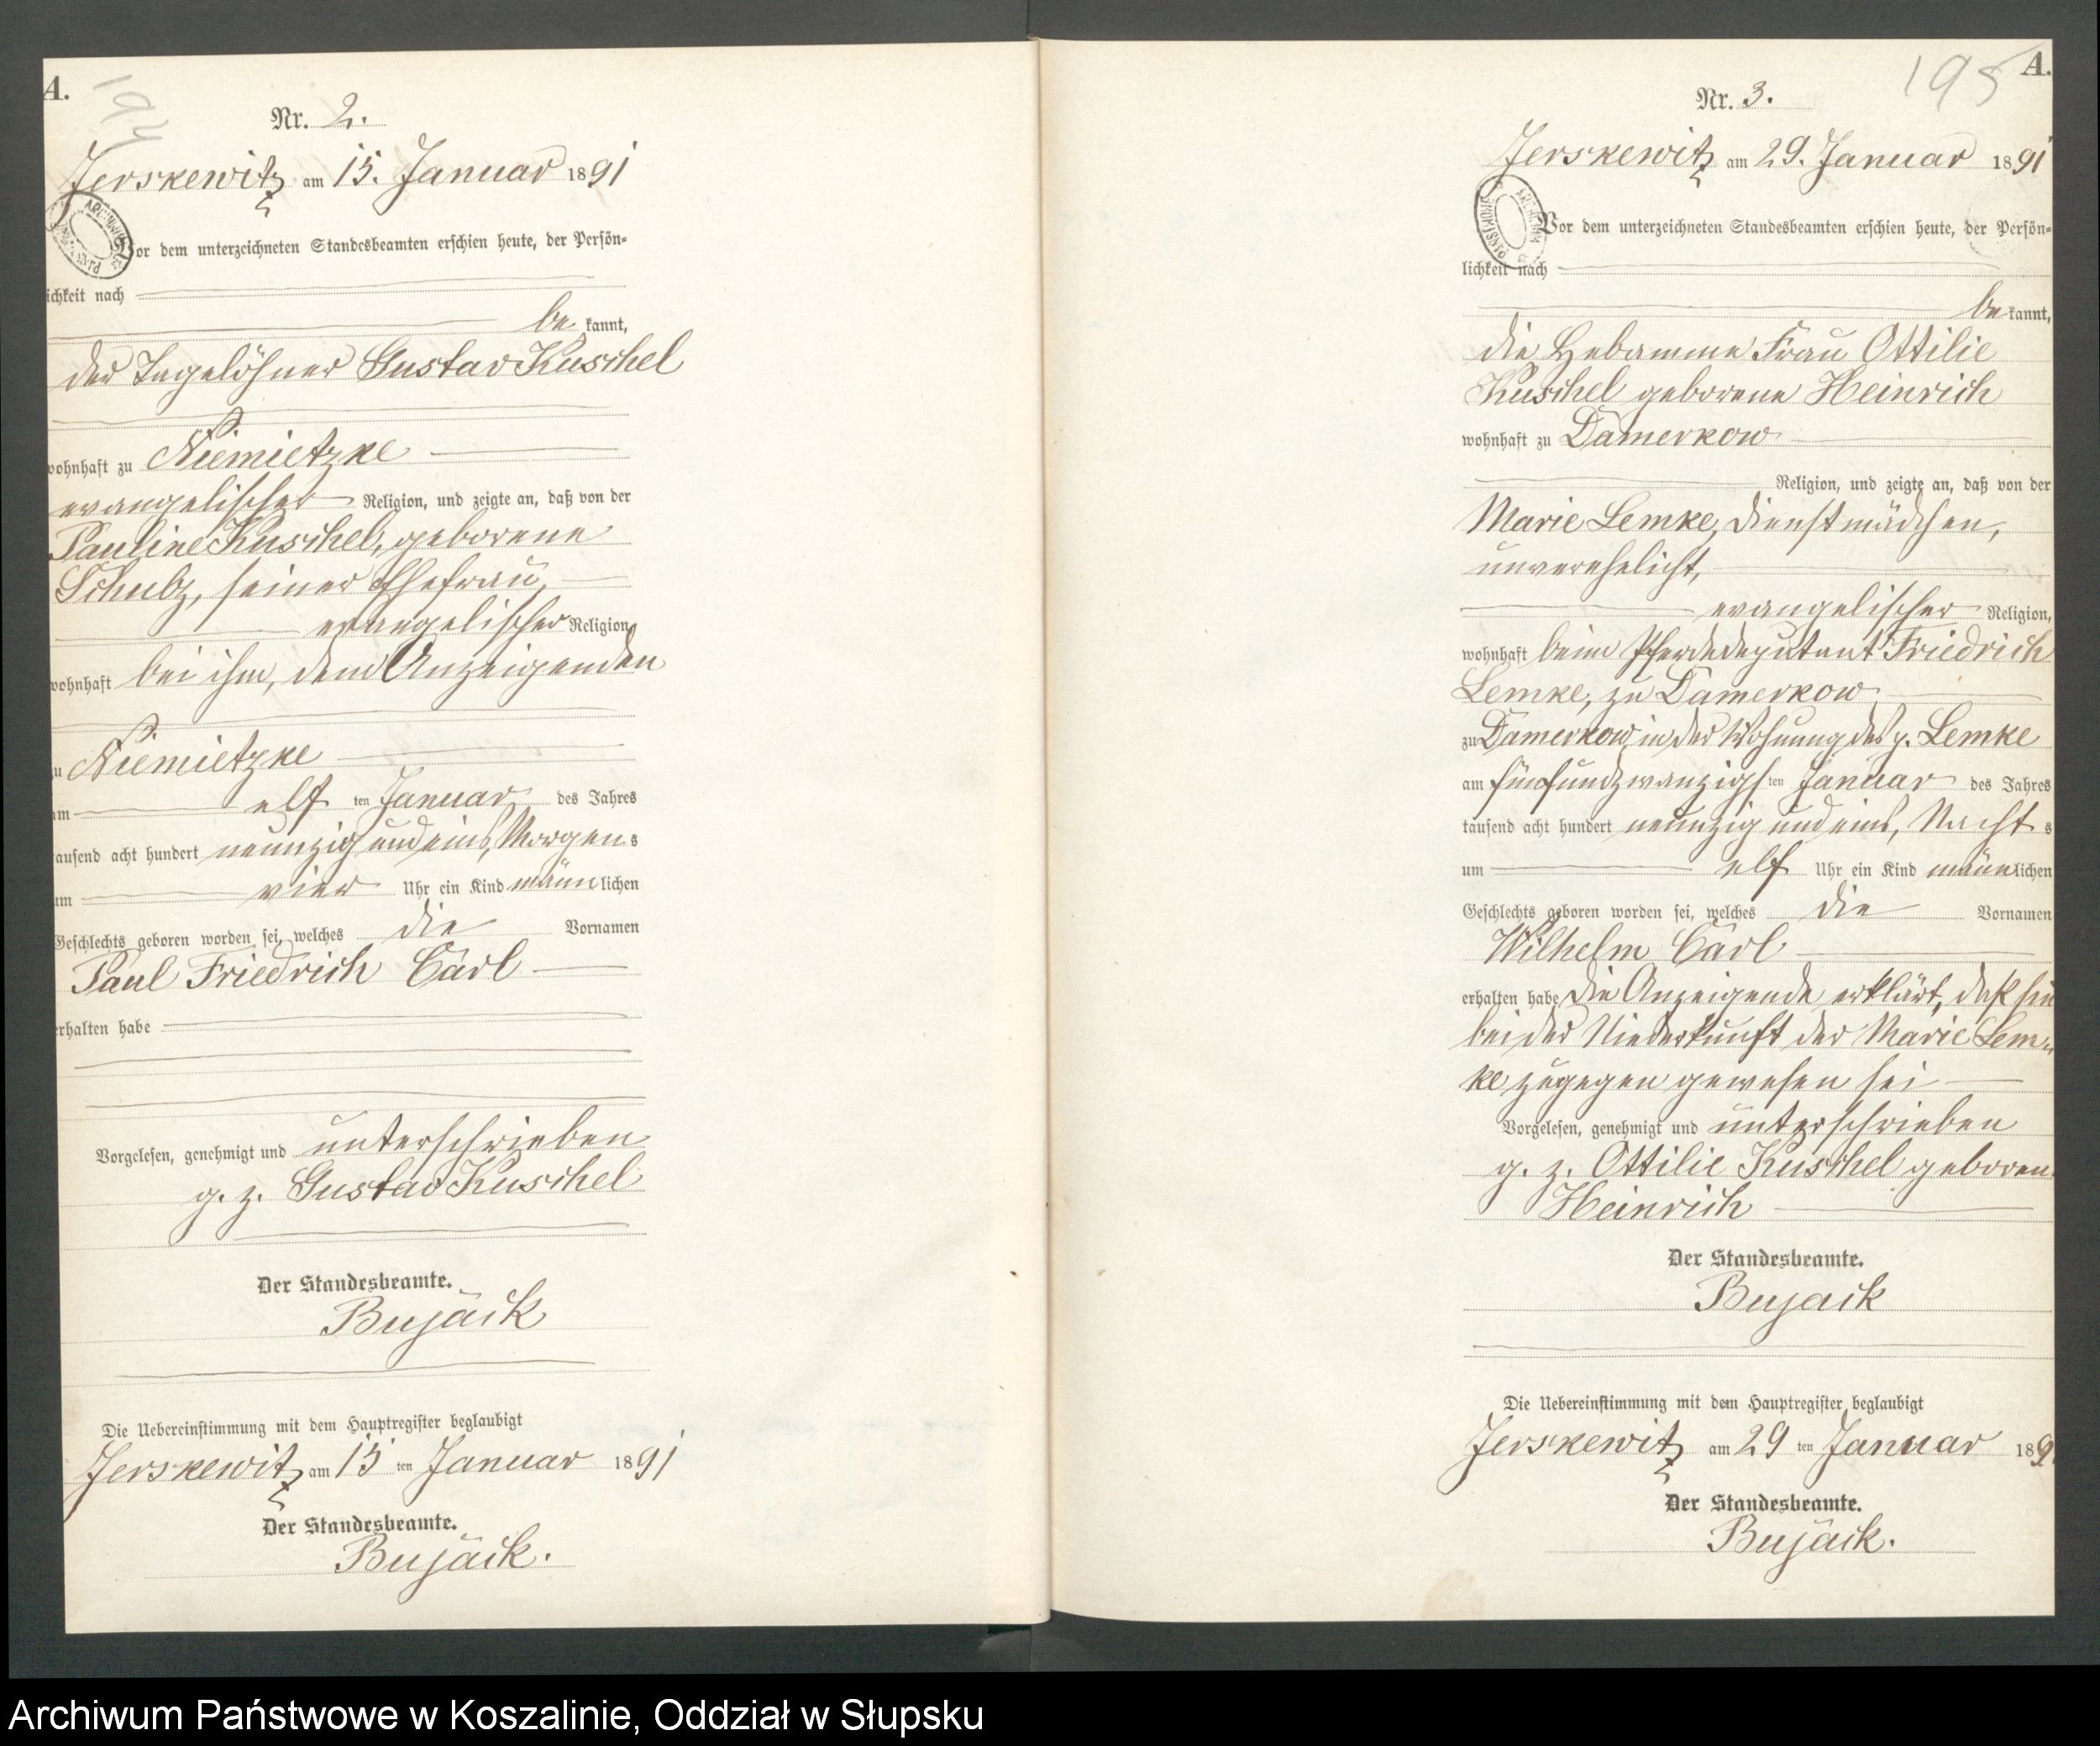 A.
194
Nr. 2.
Jerskewitz am 15. Januar 1891
Vor dem unterzeichneten Standesbeamten erschien heute, der Persön=
ichkeit nach
be kannt,
der Tagelöhner Gustav Kuschel
wohnhaft zu Niemietzke
evangelischer Religion, und zeigte an, daß von der
Pauline Kuschel, geborene
Schulz, seiner Ehefrau,
evangelischer Religion,
wohnhaft bei ihm, dem Anzeigenden
zu Niemietzke
am elf ten Januar des Jahres
tausend acht hundert neunzig und eins, Morgens
um vier Uhr ein Kind männlichen
Geschlechts geboren worden sei, welches die Vornamen
Paul Friedrich Carl
erhalten habe
Vorgelesen, genehmigt und unterschrieben
g. z. Gustav Kuschel
Der Standesbeamte.
Bujack
Die Uebereinstimmung mit dem Hauptregister beglaubigt
Jerskewitz am 15 ten Januar 1891
Der Standesbeamte.
Bujack.
195
A.
Nr. 3.
Jerskewitz am 29. Januar 1891
Vor dem unterzeichneten Standesbeamten erschien heute, der Persön=
lichkeit nach
be kannt,
die Hebamme Frau Ottilie
Kuschel geborene Heinrich
wohnhaft zu Damerkow
Religion, und zeigte an, daß von der
Marie Lemke, Dienstmädchen,
unverehelicht,
evangelischer Religion,
wohnhaft beim Pferdedeputant Friedrich
Lemke, zu Damerkow
zu Damerkow, in der Wohnung des p. Lemke
am fünfundzwanzigsten Januar des Jahres
tausend acht hundert neunzig und eins, Nachts
um elf Uhr ein Kind männlichen
Geschlechts geboren worden sei, welches die Vornamen
Wilhelm Carl
erhalten habe Die Anzeigende erklärt, daß sie
bei der Niederkunft der Marie Lem=
ke zugegen gewesen sei
Vorgelesen, genehmigt und unterschrieben
g. z. Ottilie Kuschel geboren
Heinrich
Der Standesbeamte.
Bujack
Die Uebereinstimmung mit dem Hauptregister beglaubigt
Jerskewitz am 29 ten Januar 189
Der Standesbeamte.
Bujack.
Archiwum Państwowe w Koszalinie, Oddział w Słupsku